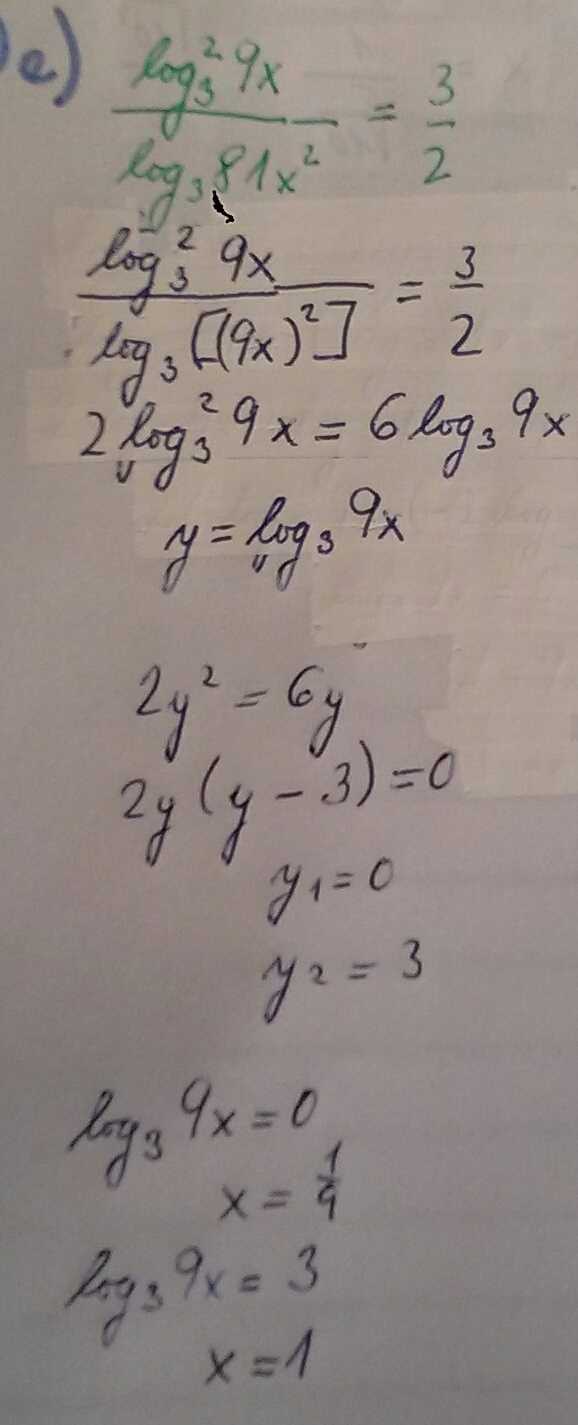 e) log₃² 9x / log₃ 81x² = 3/2
log₃² 9x / log₃ [(9x)²] = 3/2
2 log₃² 9x = 6 log₃ 9x
y = log₃ 9x
2y² = 6y
2y (y - 3) = 0
y₁ = 0
y₂ = 3
log₃ 9x = 0
x = 1/9
log₃ 9x = 3
x = 1